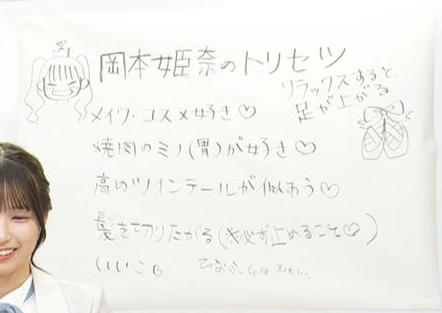 岡本姫奈のトリセツ
リラックスすると
足が上がる
メイク・コスメ好き♡
焼肉のミノ(胃)が好き♡
高めツインテールが似あう♡
髪を切りたがる(※必ず止めること♡)
いいこ